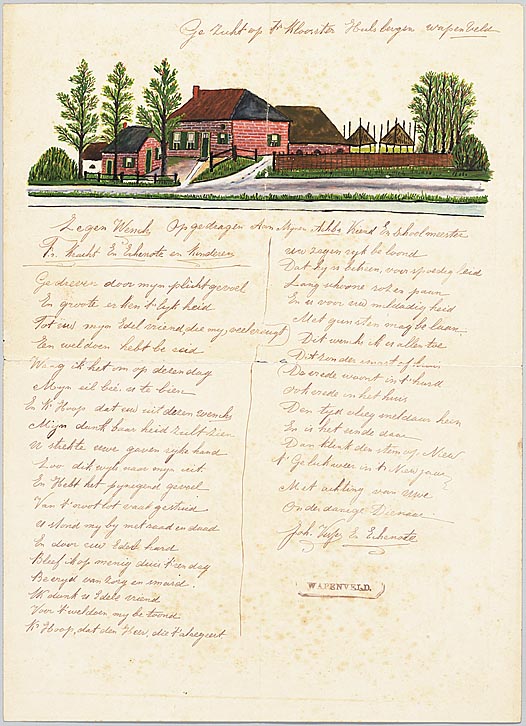 Ge Zicht op Tr Klooster Hulsbergen wapenveld
Zegen Wench Opgedragen Aan Mijnen Vriend En schoolmeester
Tr. Kracht En Echenote en Kinderen
Ge dreven door mijn plicht gevoel
En groote erken t'lyk heid
Tot uw mijn Edel vriend, die my,
Een wel doen hebt be reid
Waag ik het om op dezen dag
Mijn zil bie, es te bien
En K Hoop dat uw uil dezen wench
Mijn dank baar heid zult zien
U strekte uwe gaven rijke hand
Zoo dik wyls naar mijn uit
En Hebt het pynigend gevoel
Van t'
U stond my by met raad en daad
En door uw Edele hard
Bleef ik op menig duis t'er dag
Be vryd van Zorg en smard.
Ik dank U Edele vriend
Voor t'weldoen, my be toond
K Hoop, dat den Heer, die t'al regeert
uw zegen ryk be loond
Dat hy is beheen, voor spoedig leid
Lang schoone rozen paan
En is voor uw mildadig heid
Met gunsten mag be laan.
Dit wench U es allen toe
Dit zonder smart of kruis
De vrede woont in t' hard
ook vrede in het huis
Den tijd vlieg snel daar heen
En is het einde daar
Dan klenk den stem op New
t' Geluk weer in t' New jaar
Met achting van uwe
Onderdanige Dienaar
Joh. En Echenote
WAPENVELD.